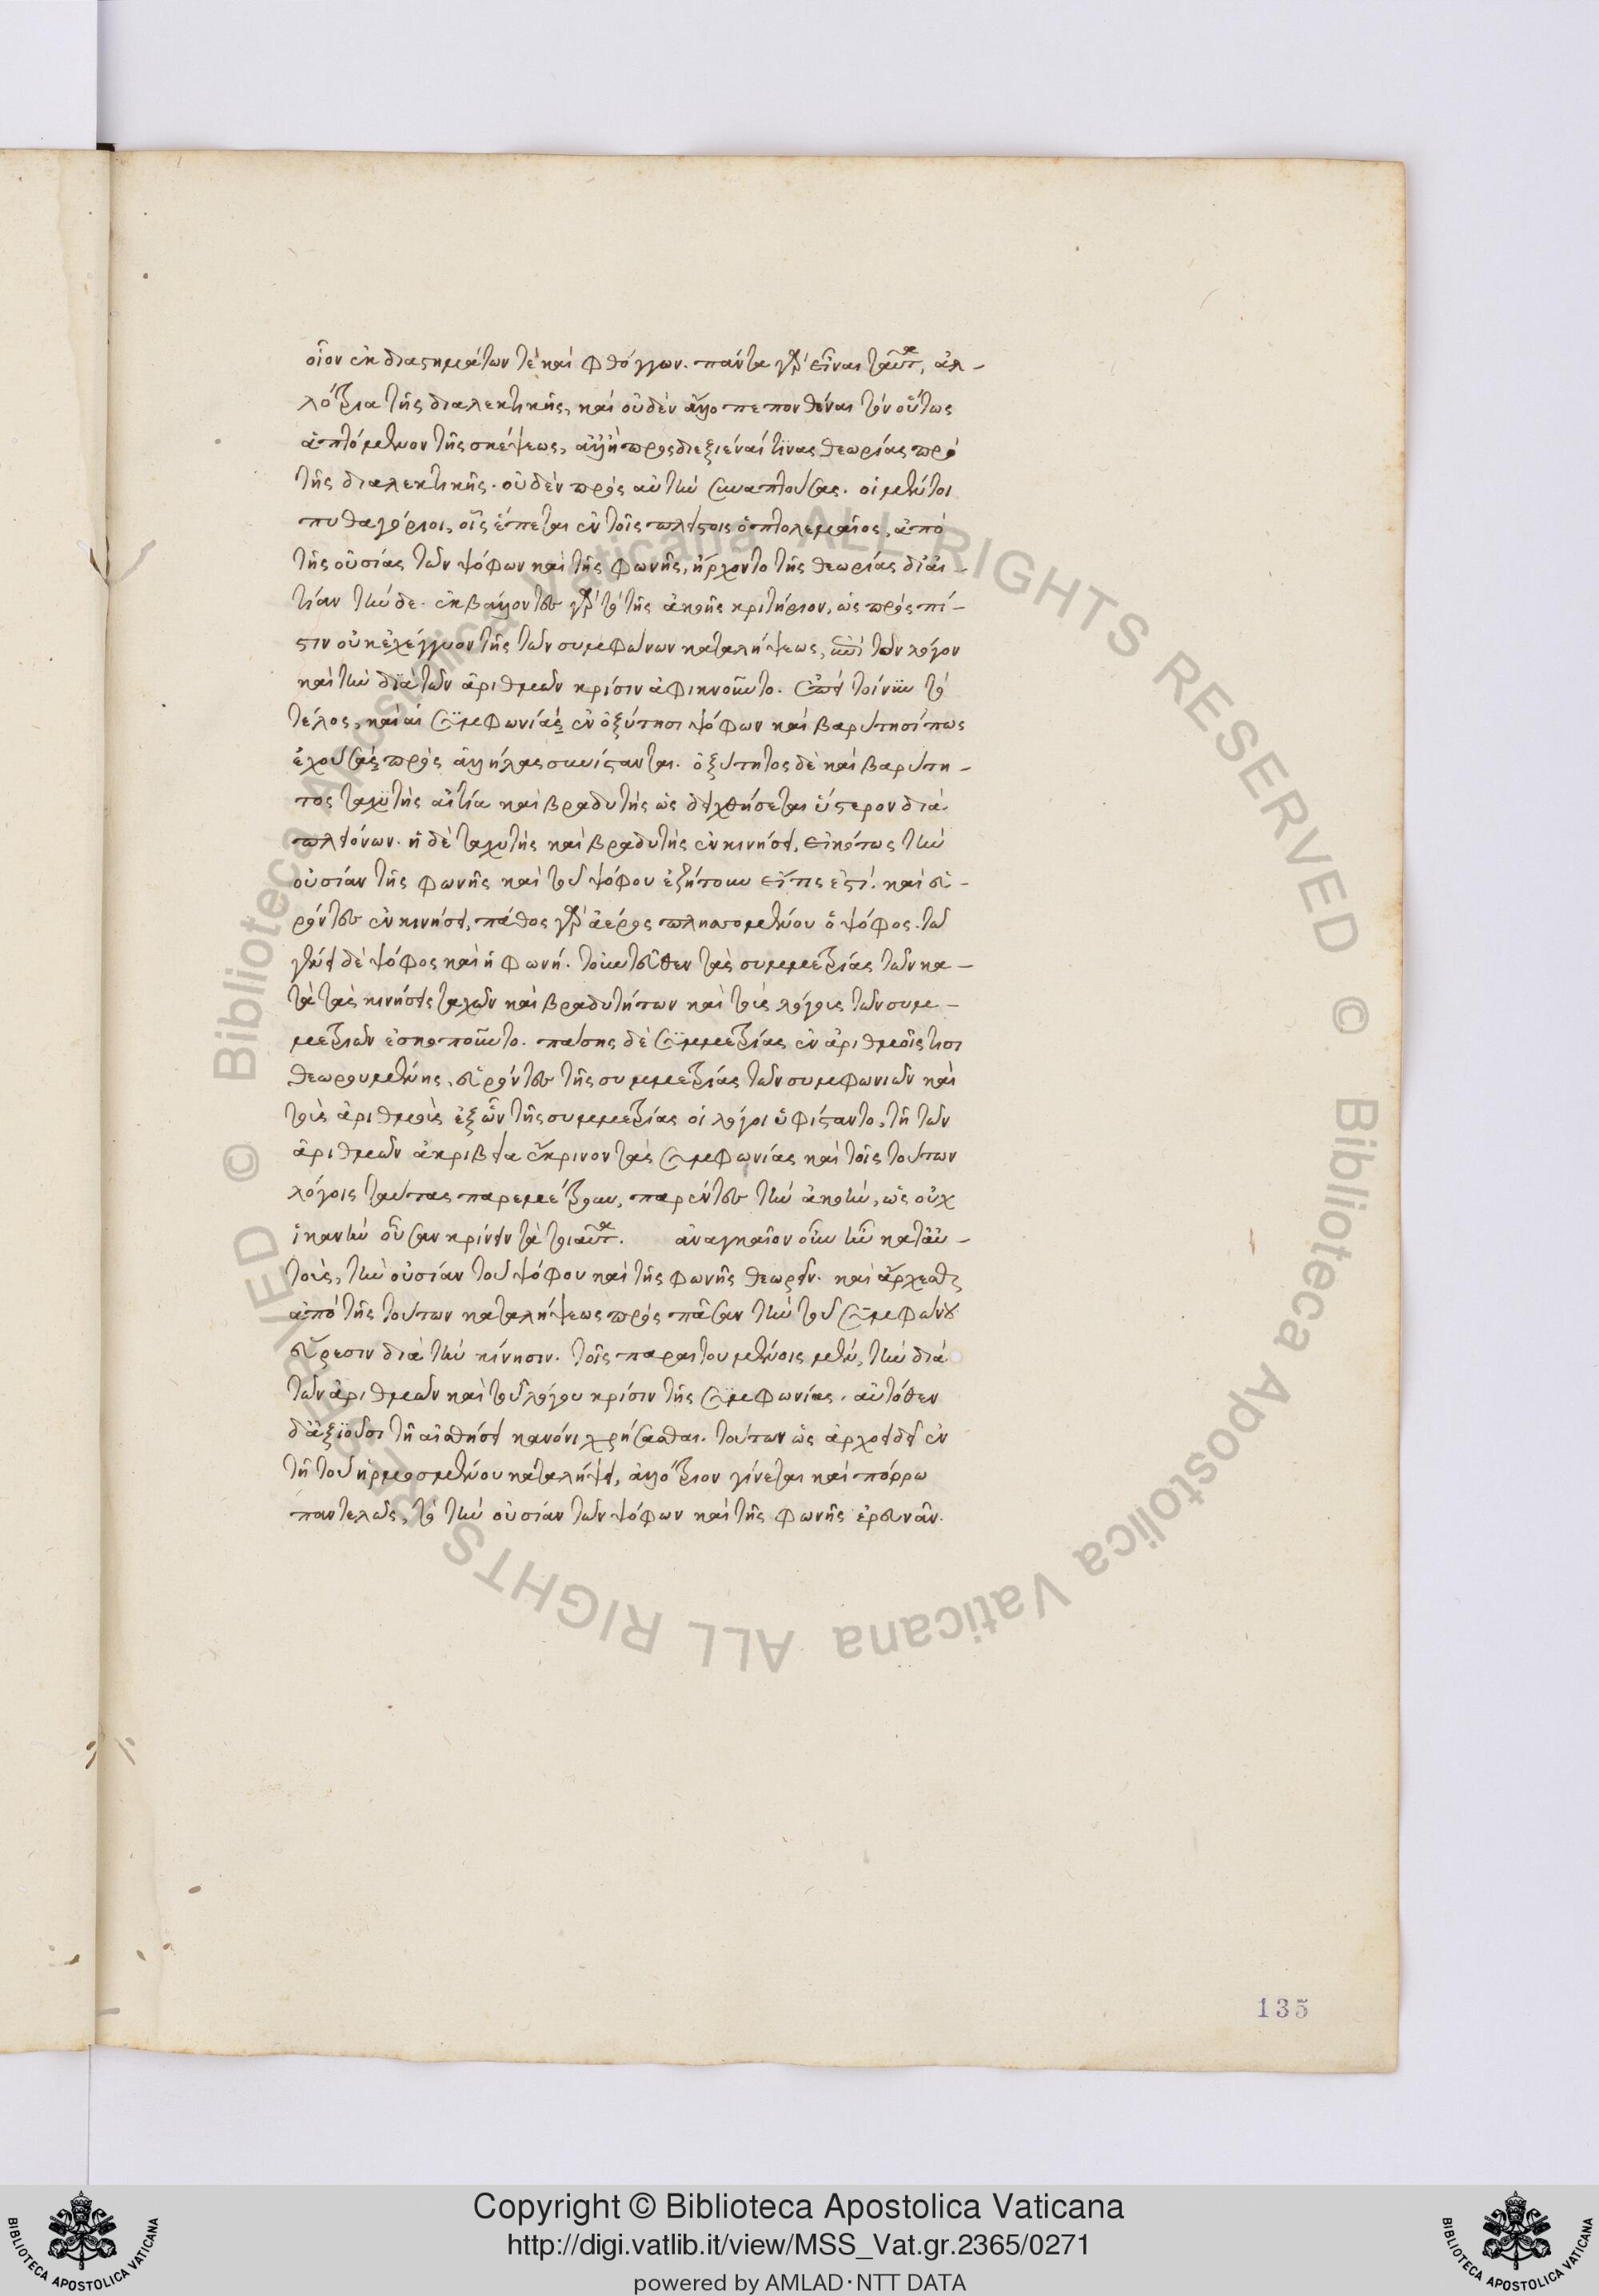 οἷον ἐκ διαστημάτων τὲ καὶ φθόγγων. πάντα γὰρ εἶναι ταῦτα, ἀλ-
λότρια τῆς διαλεκτικῆς, καὶ οὐδὲν ἄλλο πεπονθέναι τὸν οὕτως
ἁπτόμενον τῆς σκέψεως, ἀλλ' ἢ προσδιεξιέναί τινας θεωρίας πρὸ
τῆς διαλεκτικῆς. οὐδὲν πρὸς αὐτὴν συναπτούσας. οἱ μέντοι
πυθαγόρειοι, οἷς ἕπεται ἐν τοῖς πλείστοις ὁ πτολεμαῖος, ἀπὸ
τῆς οὐσίας τῶν ψόφων καὶ τῆς φωνῆς, ἤρχοντο τῆς θεωρίας δι' αἰ-
τίαν τήνδε. ἐκβάλλοντες γὰρ τὸ τῆς ἀκοῆς κριτήριον, ὡς πρὸς πί-
στιν οὐκ ἐχέγγυον τῆς τῶν συμφώνων καταλήψεως, ἐπὶ τὸν λόγον
καὶ τὴν διὰ τῶν ἀριθμῶν κρίσιν ἀφικνοῦντο. ἐπεὶ τοίνυν τὸ
τέλος, καὶ αἱ συμφωνίας ἐν ὀξύτησι ψόφων καὶ βαρύτησί πως
ἐχούσας πρὸς ἀλλήλας συνίστανται. ὀξύτητος δὲ καὶ βαρύτη-
τος ταχυτὴς αἰτία καὶ βραδυτὴς ὡς δειχθήσεται ὕστερον διὰ
πλειόνων. ἡ δὲ ταχυτὴς καὶ βραδυτὴς ἐν κινήσει, εἰκότως τὴν
οὐσίαν τῆς φωνῆς καὶ τοῦ ψόφου ἐζήτουν εἴ τις ἐστί. καὶ εὑ-
ρόντες ἐν κινήσει, πάθος γὰρ ἀέρος πλησσομένου ὁ ψόφος. τῷ
γένει δὲ ψόφος καὶ ἡ φωνή. τοὐντεῦθεν τὰς συμμετρίας τῶν κα-
τὰ τὰς κινήσεις ταχῶν καὶ βραδυτήτων καὶ τοὺς λόγους τῶν συμ-
μετριῶν ἐσκοποῦντο. πάσης δὲ συμμετρίας ἐν ἀριθμοῖς τισι
θεωρουμένης, εὑρόντες τῆς συμμετρίας τῶν συμφωνιῶν καὶ
τοὺς ἀριθμοὺς ἐξ ὧν τῆς συμμετρίας οἱ λόγοι ὑφίσταντο, τῇ τῶν
ἀριθμῶν ἀκριβείᾳ ἔκρινον τὰς συμφωνίας καὶ τοῖς τούτων
λόγοις ταύτας παρεμέτρουν, παρέντες τὴν ἀκοὴν, ὡς οὐχ
ἱκανὴν οὖσαν κρίνειν τὰ τοιαῦτα. ἀναγκαῖον οὖν ἦν κατ' αὐ-
τοὺς, τὴν οὐσίαν τοῦ ψόφου καὶ τῆς φωνῆς θεωρεῖν. καὶ ἄρχεσθαι
ἀπὸ τῆς τούτων καταλήψεως πρὸς πᾶσαν τὴν τοῦ συμφώνου
εὕρεσιν διὰ τὴν κίνησιν. τοῖς παραιτουμένοις μὲν, τὴν διὰ
τῶν ἀριθμῶν καὶ τοῦ λόγου κρίσιν τῆς συμφωνίας. αὐτόθεν
δ' ἀξιοῦσι τῇ αἰσθήσει κανόνι χρήσασθαι. τούτων ὡς ἀρχοειδεῖ ἐν
τῇ τοῦ ἡρμοσμένου καταλήψει, ἀλλότριον γίνεται καὶ πόρρω
παντελῶς, τὸ τὴν οὐσίαν τῶν ψόφων καὶ τῆς φωνῆς ἐρευνᾶν.
135
Copyright © Biblioteca Apostolica Vaticana
http://digi.vatlib.it/view/MSS_Vat.gr.2365/0271
powered by AMLAD·NTT DATA